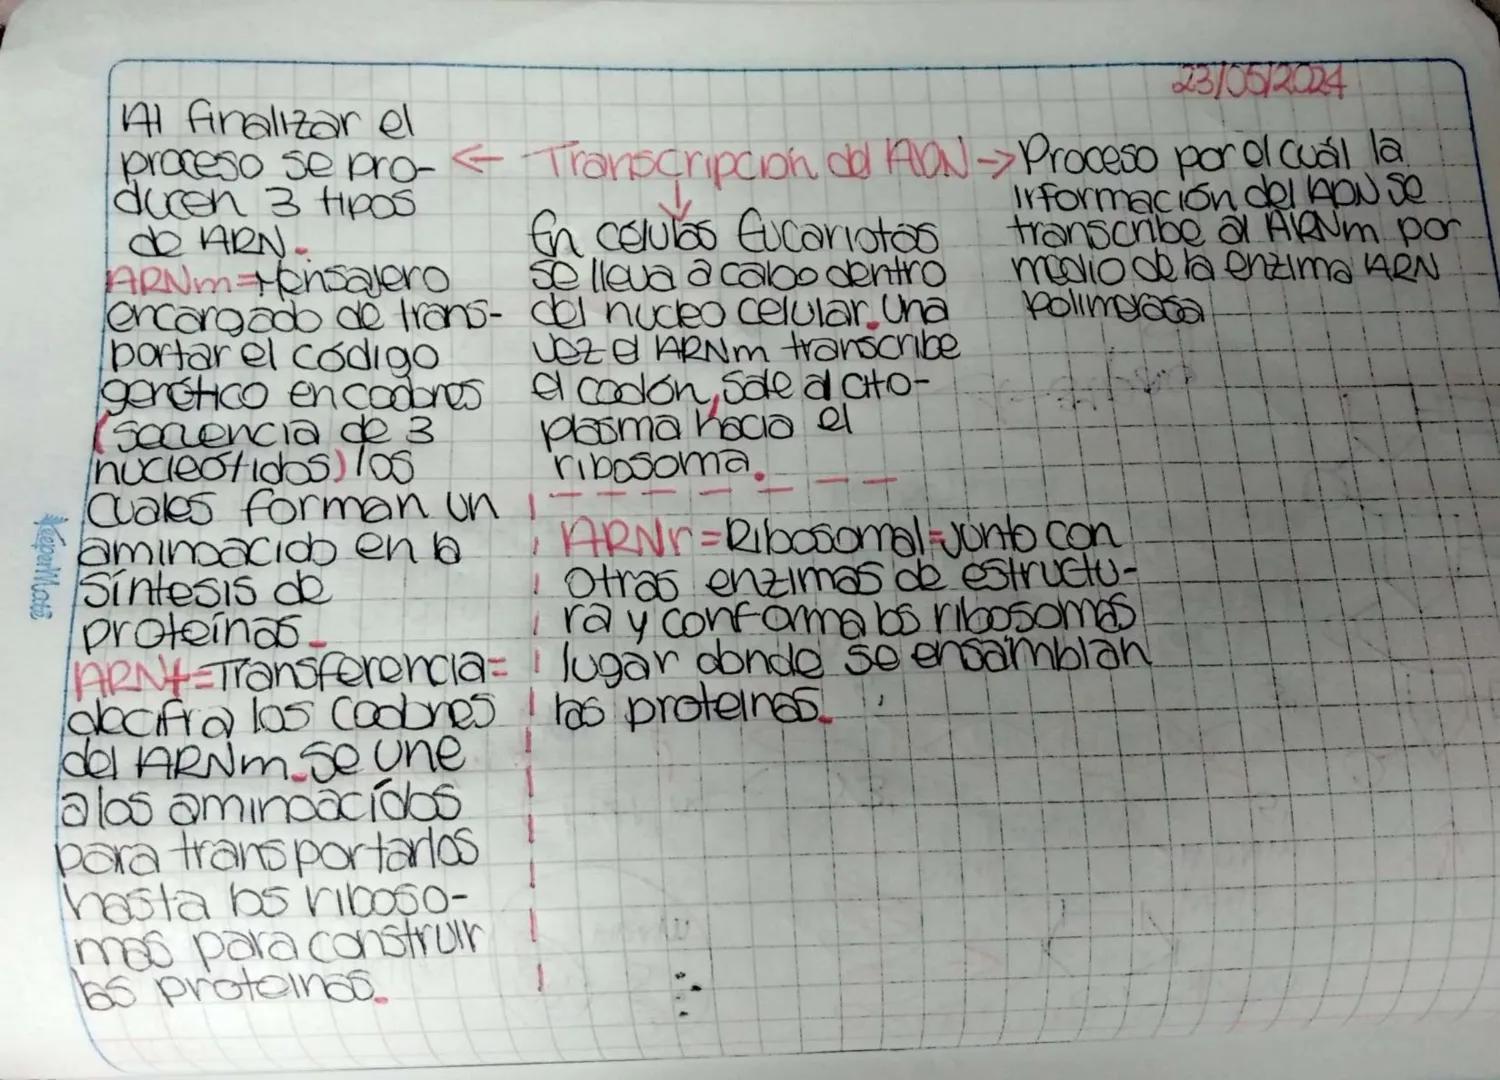 23/05/2024
Al finalizar el
proceso se pro-
ducen 3 tipos
de ARN.
ARNm=Mensajero
encargado de trans-
portar el código
genético en codones
(secuencia de 3
nucleótidos) los
cuales forman un
aminoácido en la
síntesis de
proteínas.
ARNt=Transferencia=
decifra los codones
del ARNm. Se une
a los aminoácidos
para transportarlos
hasta los riboso-
mas para construir
las proteinas.
← Transcripción del ADN →
↓
En células Eucariotas
se lleva a cabo dentro
del nucleo celular. Una
vez el ARNm transcribe
el codón, sale al cito-
plasma hacia el
ribosoma.
ARNr=Ribosomal=Junto con
otras enzimas de estructu-
ra y conforma los ribosomas
lugar donde se ensamblan
las proteinas.
Proceso por el cuál la
información del ADN se
transcribe al ARNm por
medio de la enzima ARN
polimerasa
KeeperMate